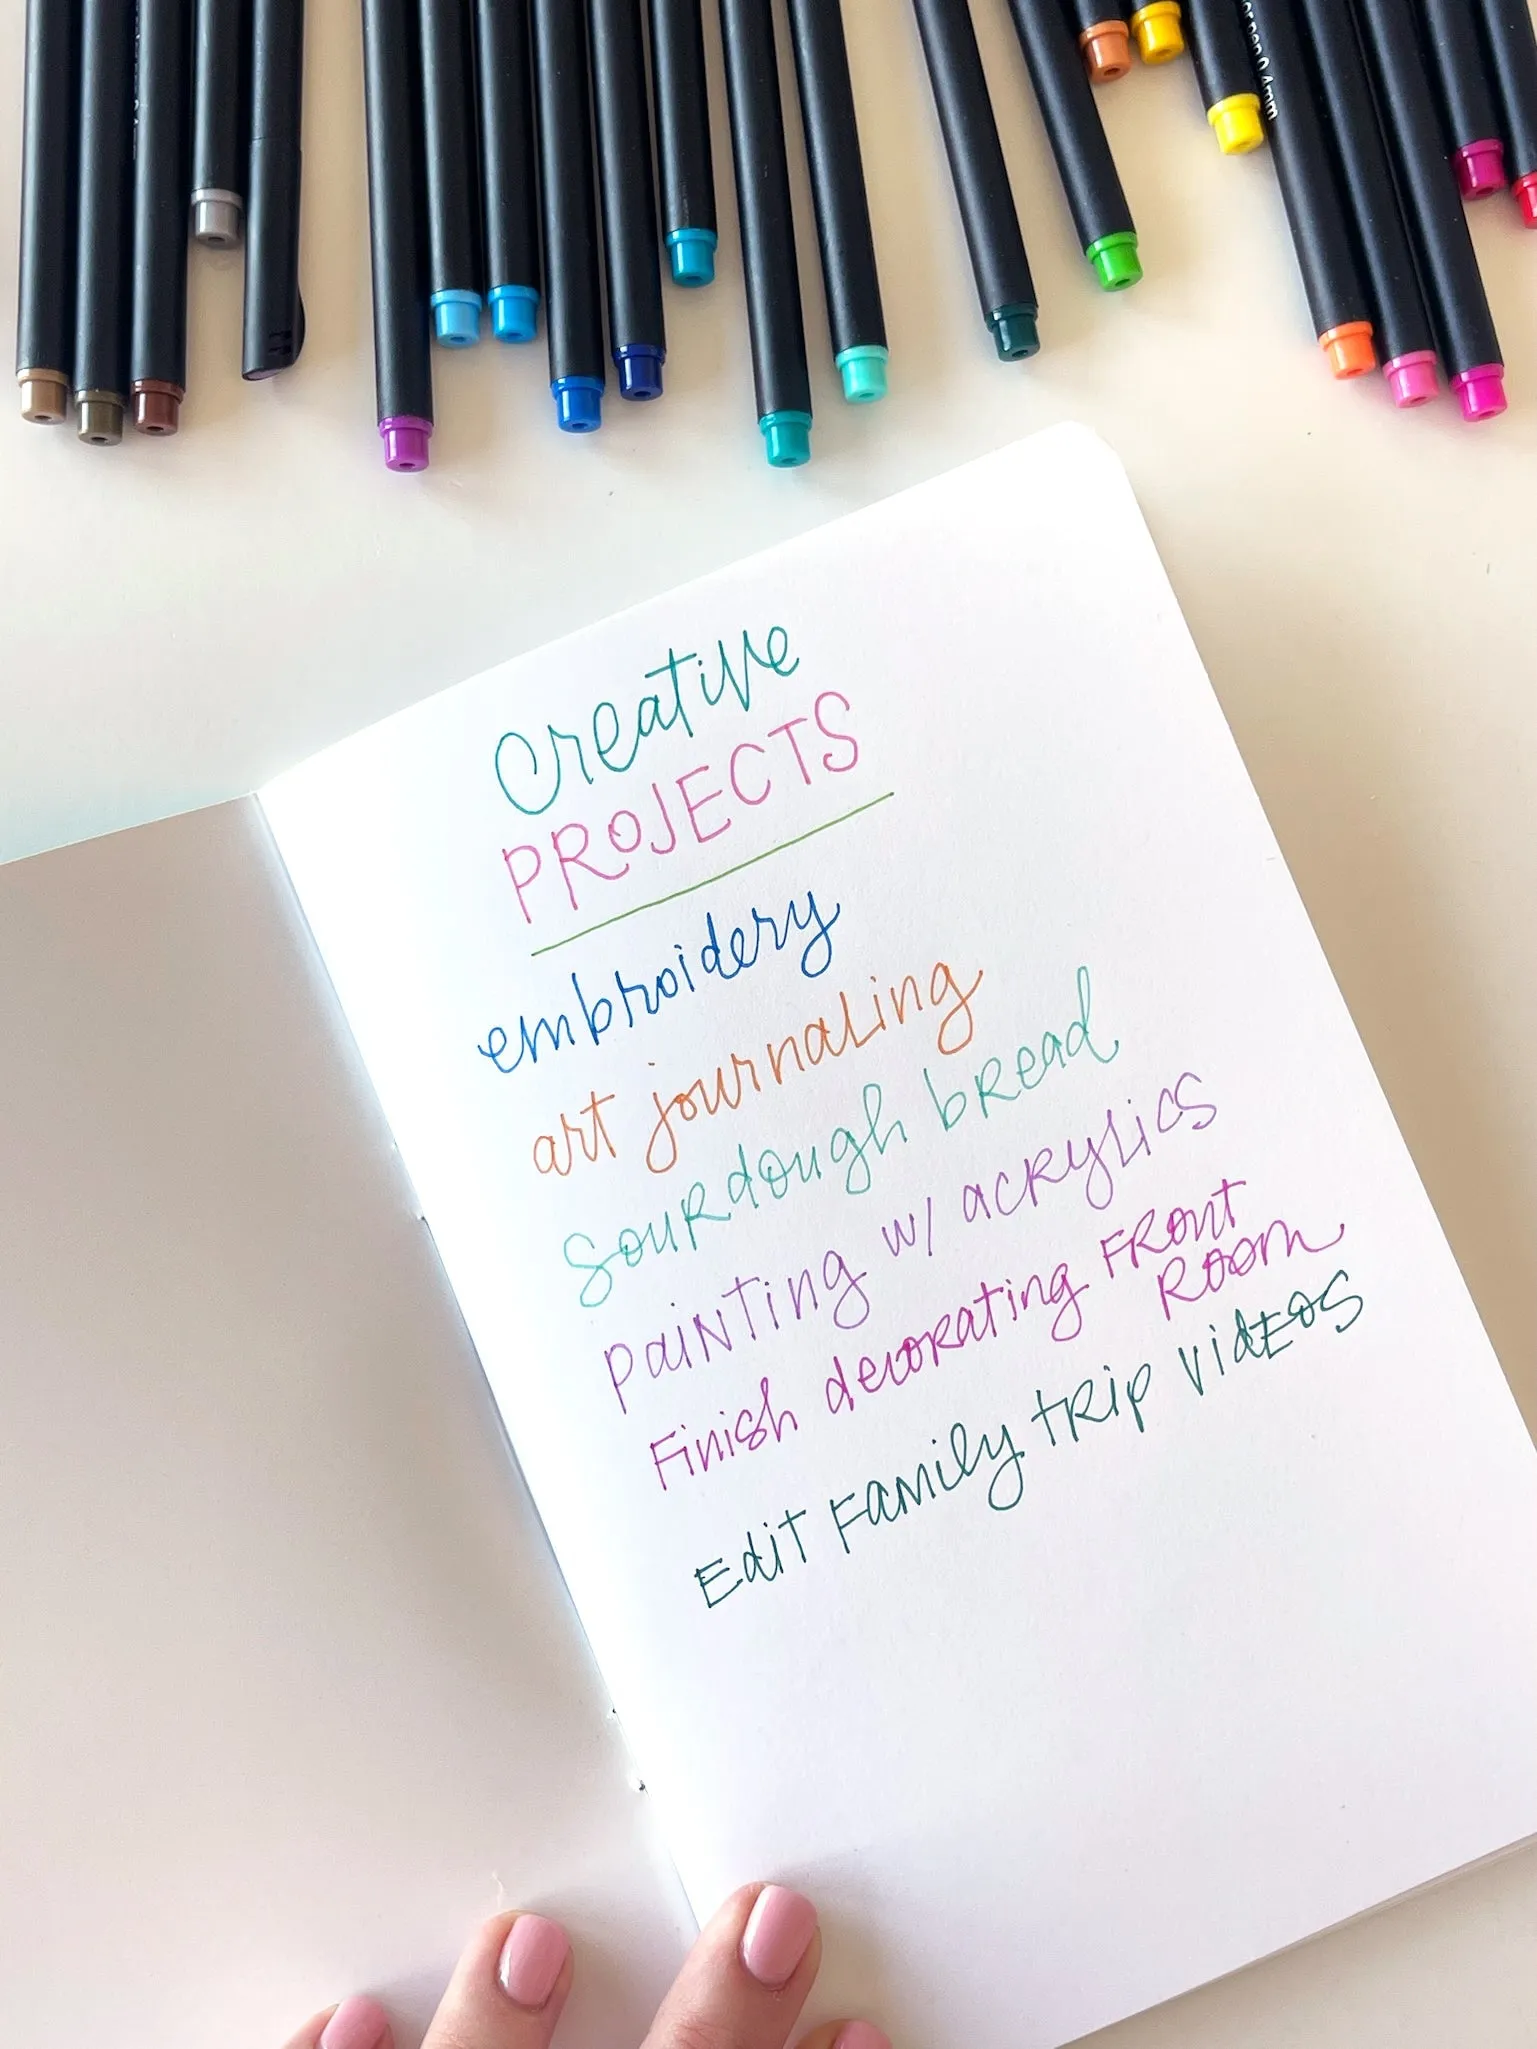 er pen 0.4mm
Creative
PROJECTS
embroidery
art journaling
sourdough bread
painting w/ acrylics
Finish decorating FRont
Room
Edit Family tRip vidEos